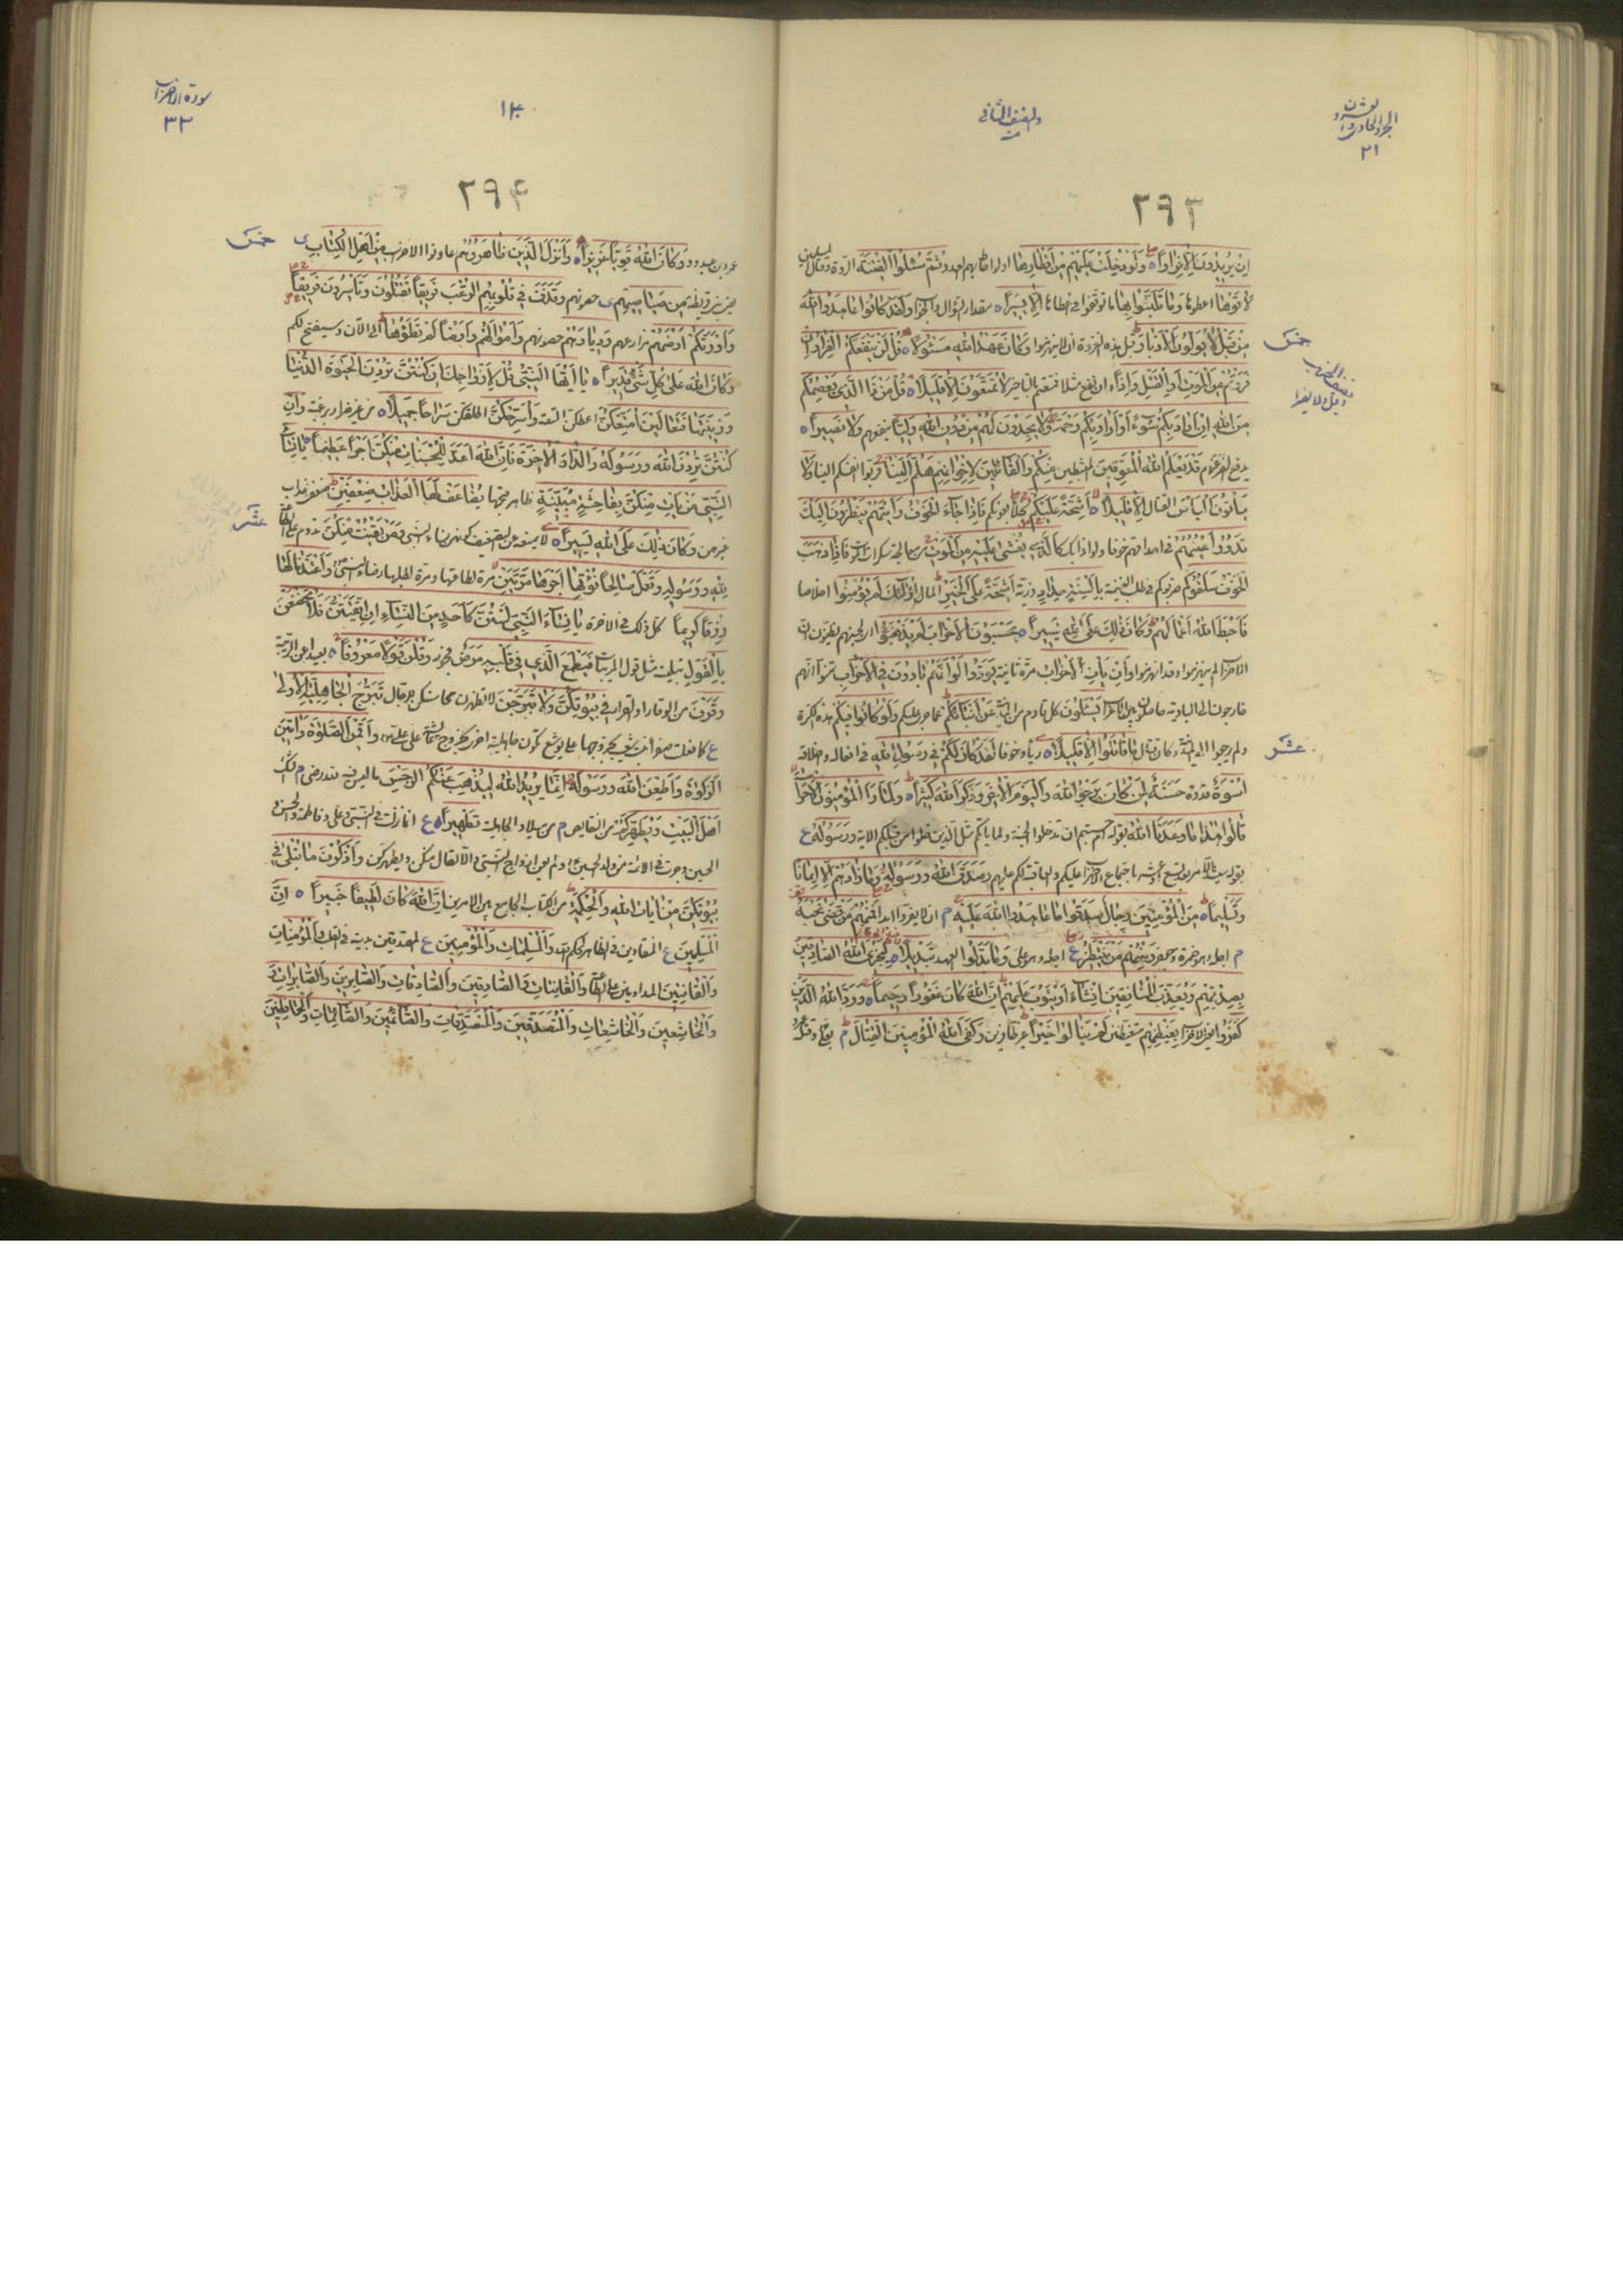 الجزء الحادي والعشرون
٢١
والنصف الثاني
٢٩٣
إِنْ يُرِيدُونَ إِلَّا فِرَارًا وَلَوْ دُخِلَتْ عَلَيْهِمْ مِنْ أَقْطَارِهَا ثُمَّ سُئِلُوا الْفِتْنَةَ الردة وقتال المسلمين
لَآتَوْهَا اعطوها وَمَا تَلَبَّثُوا بِهَا إِلَّا يَسِيرًا مقدار السؤال والجواب وَلَقَدْ كَانُوا عَاهَدُوا اللَّهَ
مِنْ قَبْلُ لَا يُوَلُّونَ الْأَدْبَارَ قبل هذه الغزوة ان لا ينهزموا وَكَانَ عَهْدُ اللَّهِ مَسْئُولًا قُلْ لَنْ يَنْفَعَكُمُ الْفِرَارُ إِنْ
فَرَرْتُمْ مِنَ الْمَوْتِ أَوِ الْقَتْلِ وَإِذًا وان نفع مثلا فمتعتم بالتاخير لَا تُمَتَّعُونَ إِلَّا قَلِيلًا قُلْ مَنْ ذَا الَّذِي يَعْصِمُكُمْ
مِنَ اللَّهِ إِنْ أَرَادَ بِكُمْ سُوءًا أَوْ أَرَادَ بِكُمْ رَحْمَةً وَلَا يَجِدُونَ لَهُمْ مِنْ دُونِ اللَّهِ وَلِيًّا ينفعهم وَلَا نَصِيرًا
يدفع الضر عنهم قَدْ يَعْلَمُ اللَّهُ الْمُعَوِّقِينَ المثبطين مِنْكُمْ وَالْقَائِلِينَ لِإِخْوَانِهِمْ هَلُمَّ إِلَيْنَا قربوا انفسكم الينا وَلَا
يَأْتُونَ الْبَأْسَ القتال إِلَّا قَلِيلًا أَشِحَّةً عَلَيْكُمْ فَإِذَا جَاءَ الْخَوْفُ رَأَيْتَهُمْ يَنْظُرُونَ إِلَيْكَ
تَدُورُ أَعْيُنُهُمْ في احداقهم خوفا ولواذا بك كَالَّذِي يُغْشَى عَلَيْهِ مِنَ الْمَوْتِ من معالجة سكرات الموت فَإِذَا ذَهَبَ
الْخَوْفُ سَلَقُوكُمْ ضربوكم في طلب الغنيمة بِأَلْسِنَةٍ حِدَادٍ ذربة أَشِحَّةً عَلَى الْخَيْرِ المال أُولَئِكَ لَمْ يُؤْمِنُوا اخلاصا
فَأَحْبَطَ اللَّهُ أَعْمَالَهُمْ وَكَانَ ذَلِكَ عَلَى اللَّهِ يَسِيرًا يَحْسَبُونَ الْأَحْزَابَ لَمْ يَذْهَبُوا اي لجبنهم يظنون ان
الاحزاب لم ينهزموا وقد انهزموا وَإِنْ يَأْتِ الْأَحْزَابُ مرة ثانية يَوَدُّوا لَوْ أَنَّهُمْ بَادُونَ فِي الْأَعْرَابِ تمنوا انهم
خارجون الى البادية حاصلون بين الاعراب يَسْأَلُونَ كل قادم من المدينة عَنْ أَنْبَائِكُمْ عما جرى عليكم وَلَوْ كَانُوا فِيكُمْ هذه الكرة
ولم يرجعوا الى المدينة وكان قتال مَا قَاتَلُوا إِلَّا قَلِيلًا رياء وخوفا لَقَدْ كَانَ لَكُمْ فِي رَسُولِ اللَّهِ في افعاله واخلاقه
أُسْوَةٌ قدوة حَسَنَةٌ لِمَنْ كَانَ يَرْجُو اللَّهَ وَالْيَوْمَ الْآخِرَ وَذَكَرَ اللَّهَ كَثِيرًا وَلَمَّا رَأَى الْمُؤْمِنُونَ الْأَحْزَابَ
قَالُوا هَذَا مَا وَعَدَنَا اللَّهُ بقوله ام حسبتم ان تدخلوا الجنة ولما ياتكم مثل الذين خلوا من قبلكم الاية وَرَسُولُهُ ع
بقوله سيشتد الامر باجتماع الاحزاب عليكم والعاقبة لكم عليهم وَصَدَقَ اللَّهُ وَرَسُولُهُ وَمَا زَادَهُمْ إِلَّا إِيمَانًا
وَتَسْلِيمًا مِنَ الْمُؤْمِنِينَ رِجَالٌ صَدَقُوا مَا عَاهَدُوا اللَّهَ عَلَيْهِ م ان لا يفروا ابدا فَمِنْهُمْ مَنْ قَضَى نَحْبَهُ
م اجله وهو حمزة وجعفر وَمِنْهُمْ مَنْ يَنْتَظِرُ ع اجله وهو علي وَمَا بَدَّلُوا العهد تَبْدِيلًا لِيَجْزِيَ اللَّهُ الصَّادِقِينَ
بِصِدْقِهِمْ وَيُعَذِّبَ الْمُنَافِقِينَ إِنْ شَاءَ أَوْ يَتُوبَ عَلَيْهِمْ إِنَّ اللَّهَ كَانَ غَفُورًا رَحِيمًا وَرَدَّ اللَّهُ الَّذِينَ
كَفَرُوا يعني الاحزاب بِغَيْظِهِمْ متغيظين لَمْ يَنَالُوا خَيْرًا غير ظافرين وَكَفَى اللَّهُ الْمُؤْمِنِينَ الْقِتَالَ م بعلي وقتله
خمس
نصف الحزب
عشر
سورة الاحزاب
٣٣
٢٩٤
عمرو بن عبدود وَكَانَ اللَّهُ قَوِيًّا عَزِيزًا وَأَنْزَلَ الَّذِينَ ظَاهَرُوهُمْ عاونوا الاحزاب مِنْ أَهْلِ الْكِتَابِ ى
يعني بني قريظة مِنْ صَيَاصِيهِمْ ى حصونهم وَقَذَفَ فِي قُلُوبِهِمُ الرُّعْبَ فَرِيقًا تَقْتُلُونَ وَتَأْسِرُونَ فَرِيقًا
وَأَوْرَثَكُمْ أَرْضَهُمْ مزارعهم وَدِيَارَهُمْ حصونهم وَأَمْوَالَهُمْ وَأَرْضًا لَمْ تَطَئُوهَا الى الان وسيفتح لكم
وَكَانَ اللَّهُ عَلَى كُلِّ شَيْءٍ قَدِيرًا يَا أَيُّهَا النَّبِيُّ قُلْ لِأَزْوَاجِكَ إِنْ كُنْتُنَّ تُرِدْنَ الْحَيَوةَ الدُّنْيَا
وَزِينَتَهَا فَتَعَالَيْنَ أُمَتِّعْكُنَّ اعطكن المتعة وَأُسَرِّحْكُنَّ اطلقكن سَرَاحًا جَمِيلًا من غير ضرار برغبة وَإِنْ
كُنْتُنَّ تُرِدْنَ اللَّهَ وَرَسُولَهُ وَالدَّارَ الْآخِرَةَ فَإِنَّ اللَّهَ أَعَدَّ لِلْمُحْسِنَاتِ مِنْكُنَّ أَجْرًا عَظِيمًا يَا نِسَاءَ
النَّبِيِّ مَنْ يَأْتِ مِنْكُنَّ بِفَاحِشَةٍ مُبَيِّنَةٍ ظاهر قبحها يُضَاعَفْ لَهَا الْعَذَابُ ضِعْفَيْنِ ضعفي عذاب
غيرهن وَكَانَ ذَلِكَ عَلَى اللَّهِ يَسِيرًا لا يمنعه عن التضعيف كونهن نساء النبي وَمَنْ يَقْنُتْ مِنْكُنَّ تدوم على الطاعة
لِلَّهِ وَرَسُولِهِ وَتَعْمَلْ صَالِحًا نُؤْتِهَا أَجْرَهَا مَرَّتَيْنِ مرة لطاعتها ومرة لطلبها رضاء النبي وَأَعْتَدْنَا لَهَا
رِزْقًا كَرِيمًا كل ذلك في الاخرة يَا نِسَاءَ النَّبِيِّ لَسْتُنَّ كَأَحَدٍ مِنَ النِّسَاءِ إِنِ اتَّقَيْتُنَّ فَلَا تَخْضَعْنَ
بِالْقَوْلِ مثل قول المريبات فَيَطْمَعَ الَّذِي فِي قَلْبِهِ مَرَضٌ فجور وَقُلْنَ قَوْلًا مَعْرُوفًا بعيدا عن الريبة
وَقَرْنَ من الوقار او القرار فِي بُيُوتِكُنَّ وَلَا تَبَرَّجْنَ لا تظهرن محاسنكن للرجال تَبَرُّجَ الْجَاهِلِيَّةِ الْأُولَى
ع وَأَقِمْنَ الصَّلَوةَ وَآتِينَ
الزَّكَوةَ وَأَطِعْنَ اللَّهَ وَرَسُولَهُ إِنَّمَا يُرِيدُ اللَّهُ لِيُذْهِبَ عَنْكُمُ الرِّجْسَ ما ليس فيه لله رضى م
أَهْلَ الْبَيْتِ وَيُطَهِّرَكُمْ من النقايص م تَطْهِيرًا ع انها نزلت في النبي وعلي وفاطمة والحسن
والحسين وجرت في الائمة من ولد الحسين وَاذْكُرْنَ مَا يُتْلَى فِي
بُيُوتِكُنَّ مِنْ آيَاتِ اللَّهِ وَالْحِكْمَةِ من الكتاب الجامع بين الامرين إِنَّ اللَّهَ كَانَ لَطِيفًا خَبِيرًا إِنَّ
الْمُسْلِمِينَ ع المنقادين في الظاهر لحكم الله وَالْمُسْلِمَاتِ وَالْمُؤْمِنِينَ ع المصدقين به في القلب وَالْمُؤْمِنَاتِ
وَالْقَانِتِينَ المداومين على الطاعة وَالْقَانِتَاتِ وَالصَّادِقِينَ وَالصَّادِقَاتِ وَالصَّابِرِينَ وَالصَّابِرَاتِ
وَالْخَاشِعِينَ وَالْخَاشِعَاتِ وَالْمُتَصَدِّقِينَ وَالْمُتَصَدِّقَاتِ وَالصَّائِمِينَ وَالصَّائِمَاتِ وَالْحَافِظِينَ
خمس
عشر